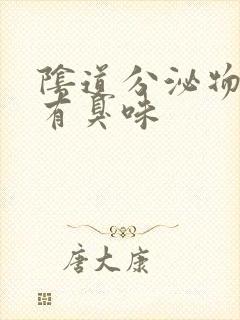 陰道分泌物
有臭味
唐大康